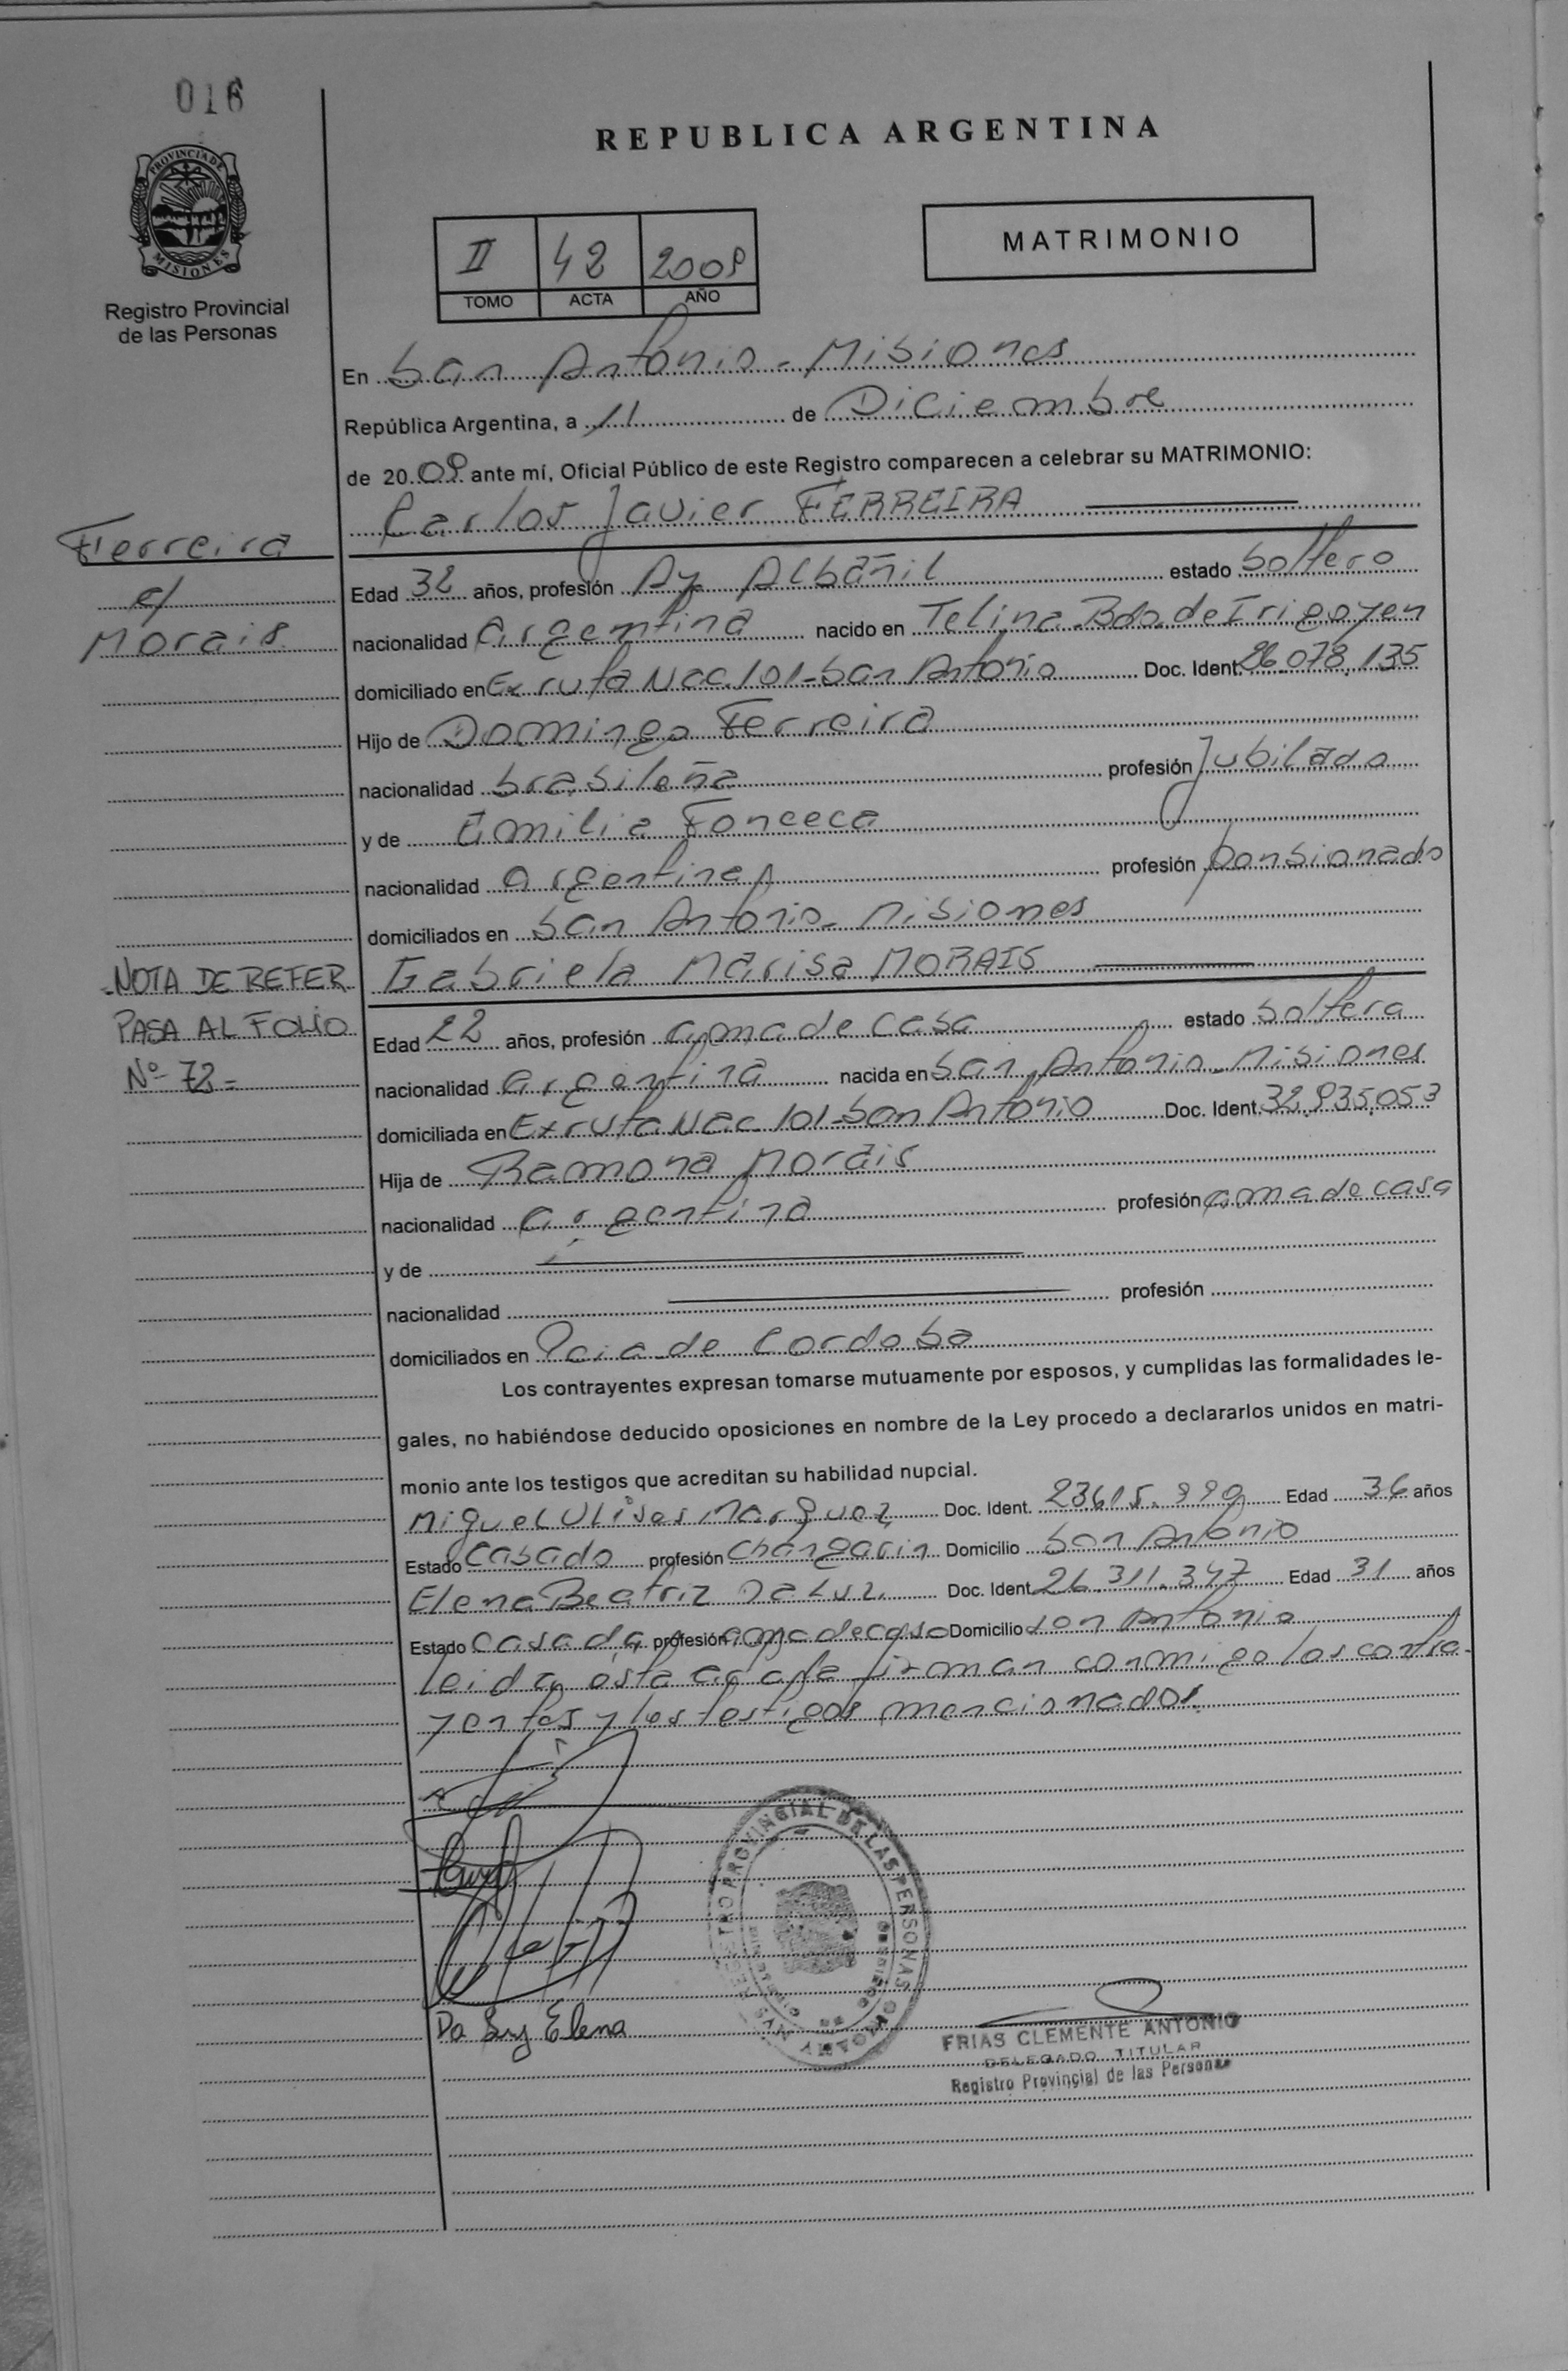 016
PROVINCIA DE
MISIONES
Registro Provincial
de las Personas
REPUBLICA ARGENTINA
II 42 2009
TOMO ACTA AÑO
MATRIMONIO
En San Antonio - Misiones
República Argentina, a 11 de Diciembre
de 2009 ante mí, Oficial Público de este Registro comparecen a celebrar su MATRIMONIO:
Carlos Javier FERREIRA
Ferreira
c/
Morais
Edad 32 años, profesión Ay. Albañil estado Soltero
nacionalidad Argentina nacido en Bdo. de Irigoyen
domiciliado en Ex ruta Nac. 101 - San Antonio Doc. Ident. 26.078.135
Hijo de Domingo Ferreira
nacionalidad brasileña profesión Jubilado
y de Emilia Fonceca
nacionalidad argentina profesión pensionado
domiciliados en San Antonio - Misiones
Gabriela Marisa MORAIS
NOTA DE REFER
PASA AL FOLIO
Nº 72 =
Edad 22 años, profesión ama de casa estado Soltera
nacionalidad argentina nacida en San Antonio - Misiones
domiciliada en Ex ruta Nac 101 - San Antonio Doc. Ident. 32.935.053
Hija de Ramona Morais
nacionalidad argentina profesión ama de casa
y de
nacionalidad profesión
domiciliados en Pcia. de Cordoba
Los contrayentes expresan tomarse mutuamente por esposos, y cumplidas las formalidades le-
gales, no habiéndose deducido oposiciones en nombre de la Ley procedo a declararlos unidos en matri-
monio ante los testigos que acreditan su habilidad nupcial.
Miguel Ulises Marquez Doc. Ident. Edad 36 años
Estado Casado profesión Changarin Domicilio San Antonio
Elena Beatriz Da Luz Doc. Ident. 26.311.347 Edad 31 años
Estado Casada profesión ama de casa Domicilio San Antonio
leida esta acta firman conmigo los contra-
yentes y los testigos mencionados.
REGISTRO PROVINCIAL DE LAS PERSONAS
Da Luz Elena
FRIAS CLEMENTE ANTONIO
DELEGADO TITULAR
Registro Provincial de las Personas